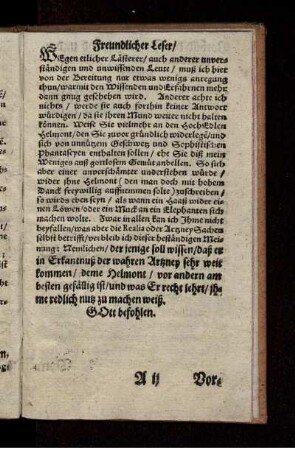 Freundlicher Leser/
WEgen etlicher Lästerer/ auch anderer unver-
ständigen und unwissenden Leute/ muß ich hier
von der Bereitung nur etwas wenigs anregung
thun/warmit den Wissenden und Erfahrnen mehr
dann gnug geschehen wird. Anderer achte ich
nichts/ werde sie auch forthin keiner Antwort
würdigen/ da sie ihren Mund weiter nicht halten
können. Weise Sie vielmehr an den HochEdlen
Helmont/ den Sie zuvor gründlich widerlegē/und
sich von unnützem Geschwetz und Sophistischen
Phantaseyen enthalten sollen/ ehe Sie diß mein
Weniges auß gottlosem Gemüt anbellen. So sich
aber einer unverschämter unterstehen würde/
wider ihne Helmont/ den man doch mit hohem
Danck freywillig auffnemmen solte/ zuschreiben/
so wirds eben seyn/ als wann ein Haaß wider ei-
nen Löwen/oder ein Muck an ein Elephanten sich
machen wolte. Zwar in allen kan ich Ihme nicht
beyfallen/was aber die Realia oder Artzney Sachen
selbst betrifft/verbleib ich dieser beständigen Mei-
nung: Nemlichen/ der jenige soll wissen/daß er
in Erkantnuß der wahren Artzney sehr weit
kommen/ deme Helmont/ vor andern am
besten gefällig ist/und was Er recht lehrt/ ih-
me redlich nutz zu machen weiß.
GOtt befohlen.
A ij Vor-